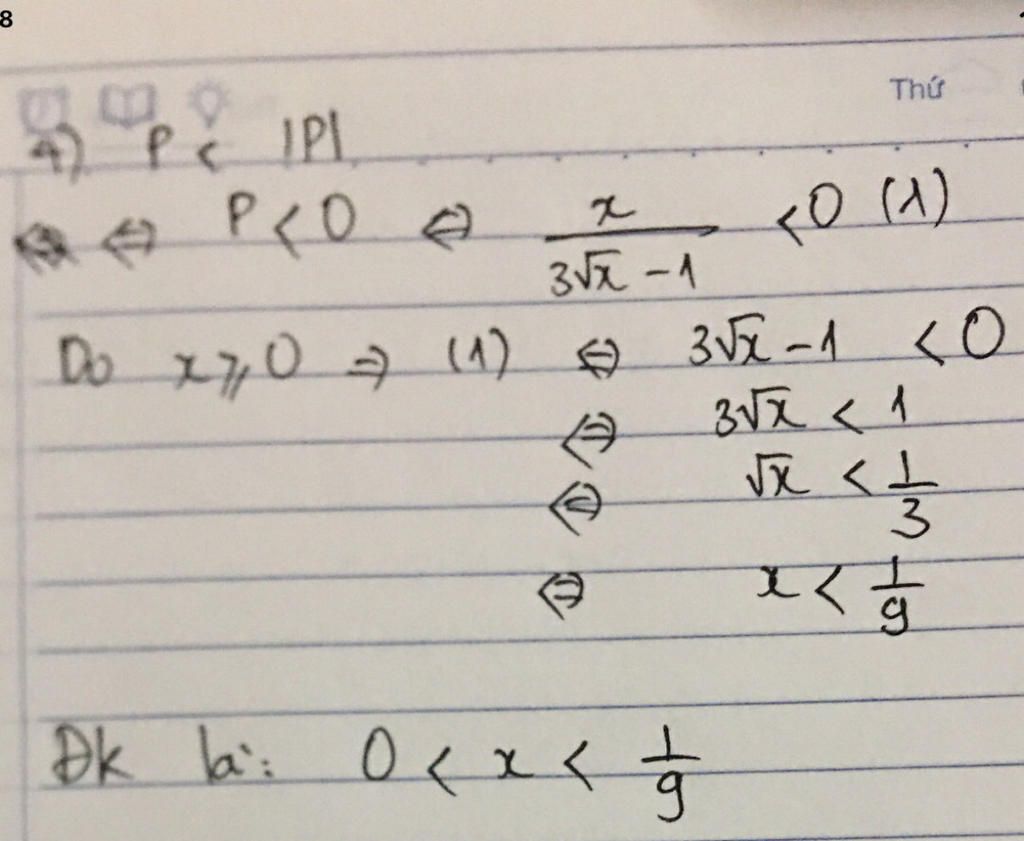 8
Thứ
4) P < |P|
⇔ P < 0 ⇔ x / (3√x - 1) < 0 (1)
Do x ⩾ 0 ⇒ (1) ⇔ 3√x - 1 < 0
⇔ 3√x < 1
⇔ √x < 1/3
⇔ x < 1/9
Đk là: 0 < x < 1/9